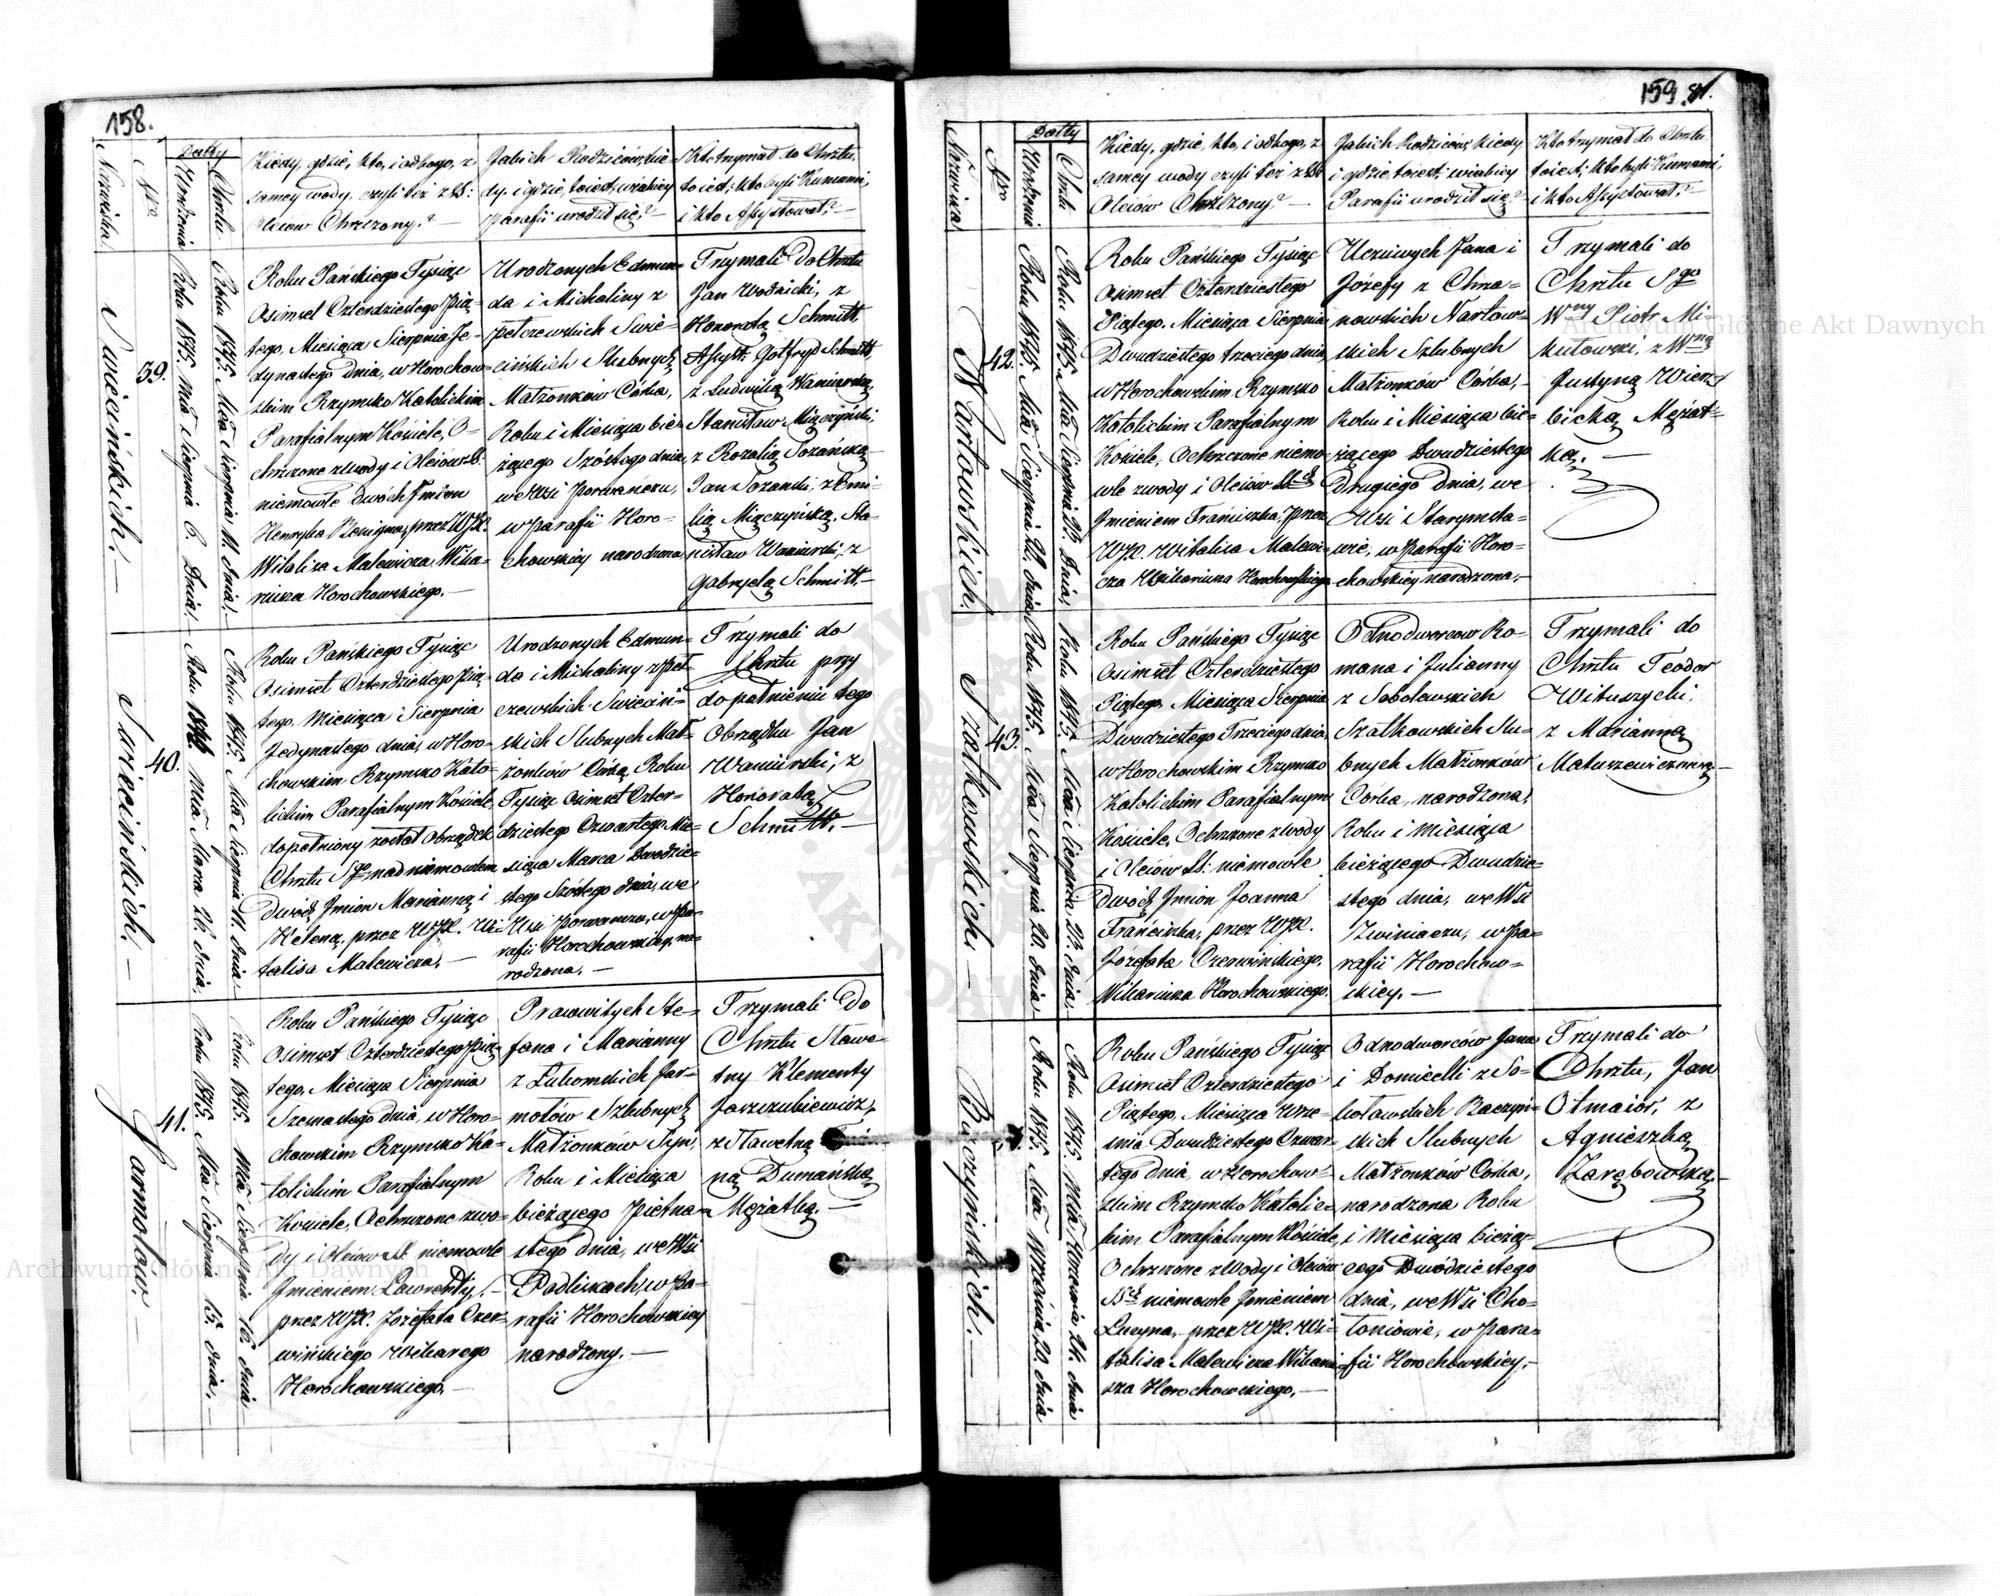 158.
Nazwiska
Nro
Datty
Urodzenia
Chrztu
Kiedy, gdzie, kto, i od kogo, z
samey wody, czyli też z SS:
Oleiów Chrzczony?
Jakich Rodziców, kie-
dy, i gdzie, to iest; w iakiey
Parafii urodził się?
Kto trzymał do Chrztu,
to iest; kto byli Kumami,
i kto Assystował?
Swiecińskich.
39.
Roku 1845. Mca Sierpnia 6. Dnia.
Roku 1845. Mca Sierpnia 11. dnia.
Roku Pańskiego Tysiąc
Osimset Czterdziestego Pią-
tego, Miesiąca Sierpnia Je-
dynastego Dnia, w Horochow-
skim Rzymsko Katolickim
Parafialnym Kościele, O-
chrzczone z wody i Oleiów SS.
niemowle dwóch Imion
Henryka przez WJX.
Witalisa Malewicza Wika-
riusza Horochowskiego.
Urodzonych Edmun-
da i Michaliny z
Pełczewskich Swie-
cińskich Slubnych
Matżonków Córka,
Roku i Miesiąca bie-
żącego Szóstego dnia,
we Wsi Porwanczu,
w Parafii Horo-
chowskiey narodzona
Trzymali do Chrztu
Jan Woźnicki, z
Honoratą Schmitt,
Assyst: Gotfryd Schmitt
z Ludwiką Waniurską,
Stanisław Miączyński,
z Rozalią Tożańską
Jan Tożanski, z Emi-
lią Miączyńską, Sta-
nisław Waniurski, z
Gabryelą Schmitt.
Swiecińskich.
40.
Mca Marca 26. dnia.
Roku 1845. Mca Sierpnia 11. dnia
Roku Pańskiego Tysiąc
Osimset Czterdziestego Pią-
tego, Miesiąca Sierpnia
Jedynastego dnia, w Horo-
chowskim Rzymsko Kato-
lickim Parafialnym Kościele
dopełniony został Obrządek
Chrztu Sgo nad niemowlem
Dwóch Imion Marianną i
Heleną, przez WJX. Wi-
talisa Malewicza.
Urodzonych Edmun-
da i Michaliny z Peł-
czewskich Swieciń-
skich Slubnych Mat-
żonków Córką, Roku
Tysiąc Osimset Czter-
dziestego Czwartego, Mie-
siąca Marca Dwudzie-
stego Szóstego dnia, we
Wsi Porwanczu, w Pa-
rafii Horochowskiey, na-
rodzona.
Trzymali do
Chrztu przy
dopełnieniu tego
Obrządku Jan
Waniurski, z
Honoratą
Schmitt.
Jarmołów
41.
Roku 1845. Mca Sierpnia 15. dnia.
Roku 1845. Mca Sierpnia 16. dnia
Roku Pańskiego Tysiąc
Osimset Czterdziestego Pią-
tego, Miesiąca Sierpnia
Szesnastego dnia, w Horo-
chowskim Rzymsko Ka-
tolickim Parafialnym
Kościele, Ochrzczone z wo-
dy i Oleiów SS. niemowle
Imieniem Lawrenty,
przez WJX. Józefata Czer-
wińskiego Wikarego
Horochowskiego.
Prawowitych Ste-
fana i Marianny
z Lukomskich Jar-
mołów Szlubnych
Matżonków Syn,
Roku i Miesiąca
bieżącego Piętna-
stego dnia, we Wsi
Podliskach, w Pa-
rafii Horochowskiey
narodzony.
Trzymali do
Chrztu Sława-
tny Klementy
z Sławetną
Dumańską
Mężatką.
159.
81.
Nazwiska
Nro
Datty
Urodzenia
Chrztu
Kiedy, gdzie, kto, i od kogo, z
samey wody czyli też z SS
Oleiów Chrzczony?
Jakich Rodziców, kiedy
i gdzie to iest; w iakiey
Parafii urodził się?
Kto trzymał do Chrztu
to iest; kto byli Kumami,
i kto Assystował?
Nartowskich.
42.
Roku 1845. Mca Sierpnia 22. dnia
Roku 1845. Mca Sierpnia 23. Dnia.
Roku Pańskiego Tysiąc
Osimset Czterdziestego
Piątego, Miesiąca Sierpnia
Dwudziestego trzeciego dnia,
w Horochowskim Rzymsko
Katolickim Parafialnym
Kościele, Ochrzczone niemo-
wle z wody i Oleiów SSch
Imieniem Franciszka, Przez
WJX. Witalisa Malewi-
cza Wikariusza Horochowskiego
Uczciwych Jana i
Józefy z Chma-
nowskich Nartow-
skich Szlubnych
Matżonków Córka,
Roku i Miesiąca bie-
żącego Dwudziestego
Drugiego Dnia, we
Wsi Starymsta-
wie, w Parafii Horo-
chowskiey narodzona.
Trzymali do
Chrztu Sgo
Wny Piotr Mi-
kułowski, z Wną
Justyną Wierz-
bicką Mężat-
ką.
Szatkowskich.
43.
Roku 1845. Mca Sierpnia 20. dnia
Roku 1845. Mca Sierpnia 23. dnia.
Roku Pańskiego Tysiąc
Osimset Czterdziestego
Piątego, Miesiąca Sierpnia
Dwudziestego Trzeciego dnia,
w Horochowskim Rzymsko
Katolickim Parafialnym
Kościele, Ochrzczone z wody
i Oleiów SS. niemowle
Dwóch Imion Joanna
Franciszka, przez WJX.
Józefata Czerwińskiego,
Wikariusza Horochowskiego.
Odnodworców Ro-
mana i Julianny
z Sobolewskich
Szatkowskich Slu-
bnych Matżonków
Córka, narodzona,
Roku i Miesiąca
bieżącego Dwudzie-
stego dnia, we Wsi
Zwiniaczu, w Pa-
rafii Horochow-
skiey.
Trzymali do
Chrztu Teodor
Wituszycki,
z Marianną
Matuszewiczową
Baczyńskich.
Roku 1845. Mca Września 20. dnia
Roku 1845. Mca Września 24. dnia
Roku Pańskiego Tysiąc
Osimset Czterdziestego
Piątego, Miesiąca Wrze-
śnia Dwudziestego Czwar-
tego dnia, w Horochow-
skim Rzymsko Katolic-
kim Parafialnym Kościele,
Ochrzczone z Wody i Oleiów
SSch niemowle Imieniem
Lucyna, przez WJX. Wi-
talisa Malewicza Wikariu-
sza Horochowskiego.
Odnodworców Jana
i Domicelli z So-
kołowskich Baczyń-
skich Slubnych
Matżonków Córka,
narodzona Roku
i Miesiąca bieżą-
cego Dwódziestego
dnia, we Wsi Cho-
łoniowie, w Para-
fii Horochowskiey.
Trzymali do
Chrztu, Jan
Otmaior, z
Agnieszką
Zarębowską.
Archiwum Główne Akt Dawnych
Archiwum Główne Akt Dawnych